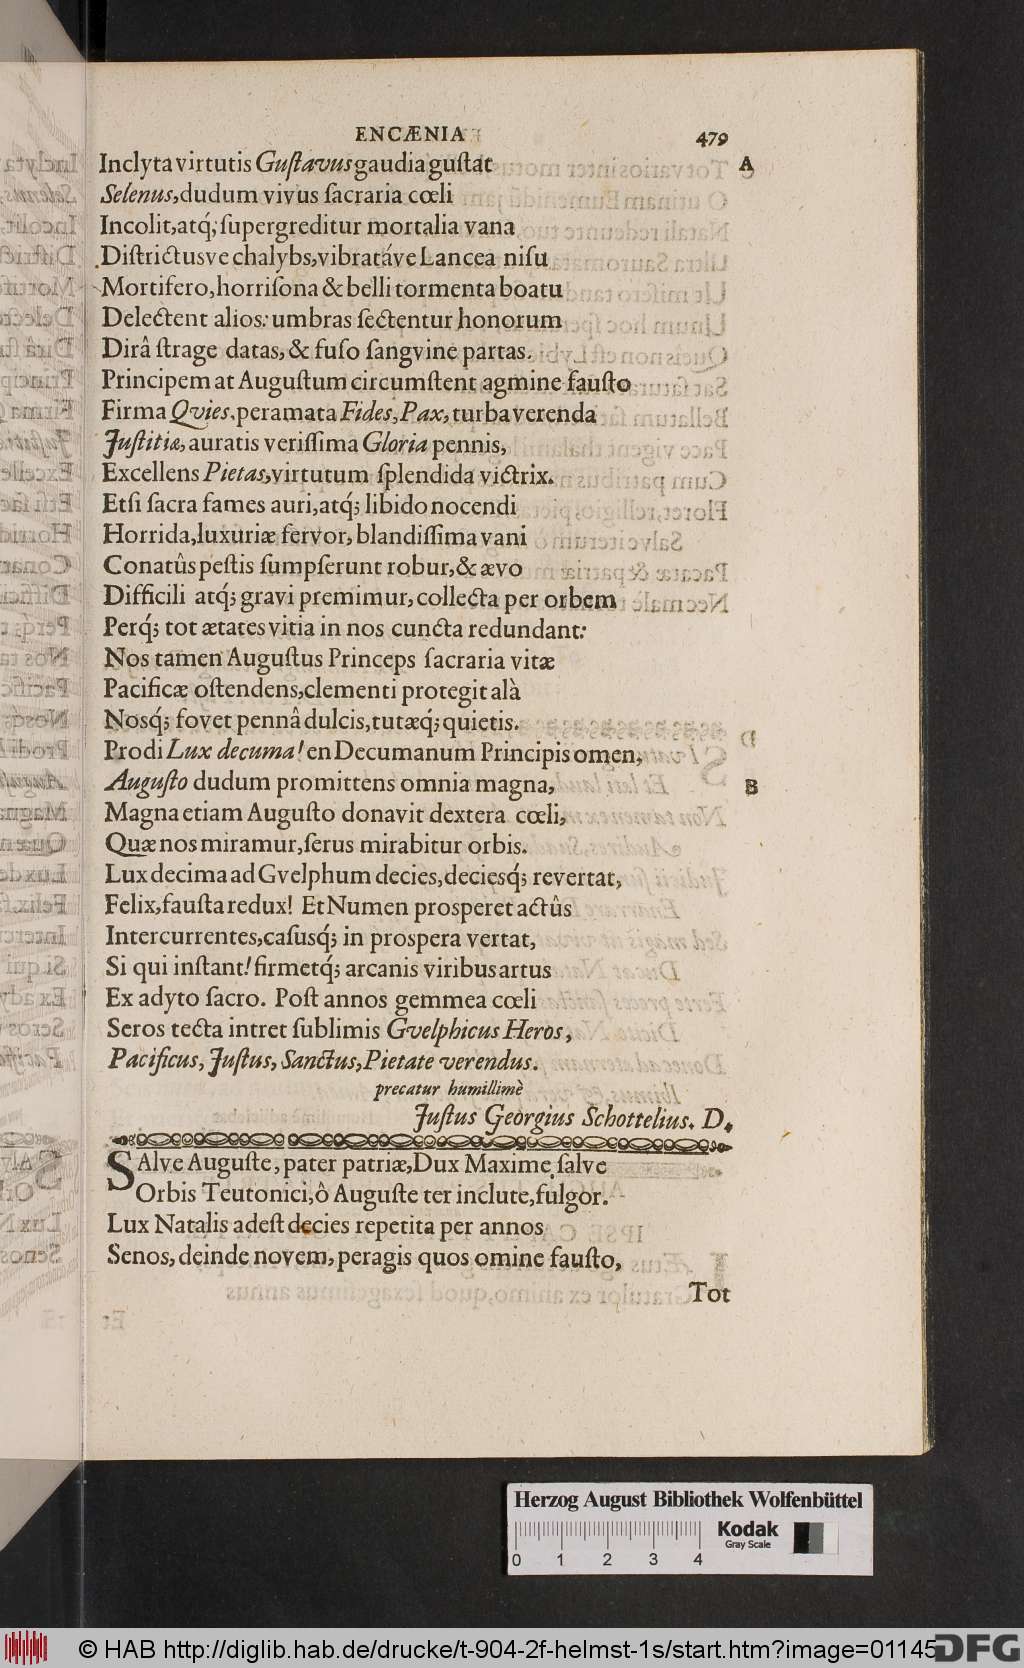 ENCÆNIA 479
Inclyta virtutis Guſtavus gaudia guſtat A
Selenus, dudum vivus ſacraria cœli
Incolit, atq́; ſupergreditur mortalia vana
Diſtrictusve chalybs, vibratáve Lancea niſu
Mortifero, horriſona & belli tormenta boatu
Delectent alios: umbras ſectentur honorum
Dirâ ſtrage datas, & fuſo ſangvine partas.
Principem at Auguſtum circumſtent agmine fauſto
Firma Qvies. peramata Fides, Pax, turba verenda
Juſtitiæ, auratis veriſſima Gloria pennis,
Excellens Pietas, virtutum ſplendida victrix.
Etſi ſacra fames auri, atq́; libido nocendi
Horrida, luxuriæ fervor, blandiſſima vani
Conatûs peſtis ſumpſerunt robur, & ævo
Difficili atq́; gravi premimur, collecta per orbem
Perq́; tot ætates vitia in nos cuncta redundant:
Nos tamen Auguſtus Princeps ſacraria vitæ
Pacificæ oſtendens, clementi protegit alà
Nosq́; fovet pennâ dulcis, tutæq́; quietis.
Prodi Lux decuma! en Decumanum Principis omen,
Auguſto dudum promittens omnia magna, B
Magna etiam Auguſto donavit dextera cœli,
Quæ nos miramur, ſerus mirabitur orbis.
Lux decima ad Gvelphum decies, deciesq́; revertat,
Felix, fauſta redux! Et Numen proſperet actûs
Intercurrentes, caſusq́; in proſpera vertat,
Si qui inſtant! firmetq́; arcanis viribus artus
Ex adyto ſacro. Poſt annos gemmea cœli
Seros tecta intret ſublimis Gvelphicus Heros,
Pacificus, Juſtus, Sanctus, Pietate verendus.
precatur humillimè
Juſtus Georgius Schottelius. D.
SAlve Auguſte, pater patriæ, Dux Maxime ſalve
Orbis Teutonici, ô Auguſte ter inclute, fulgor.
Lux Natalis adeſt decies repetita per annos
Senos, deinde novem, peragis quos omine fauſto,
Tot
Herzog August Bibliothek Wolfenbüttel
Kodak
Gray Scale
0 1 2 3 4
© HAB http://diglib.hab.de/drucke/t-904-2f-helmst-1s/start.htm?image=01145
DFG